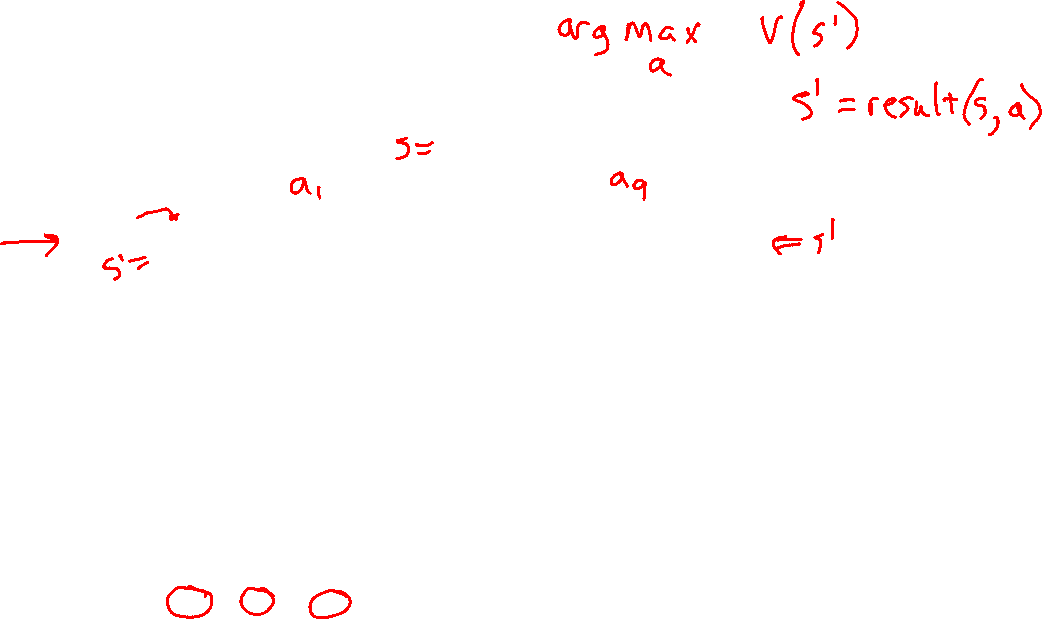 arg max V(s')
a
s' = result(s, a)
s=
a₁ a₉
⇐ s'
s'=